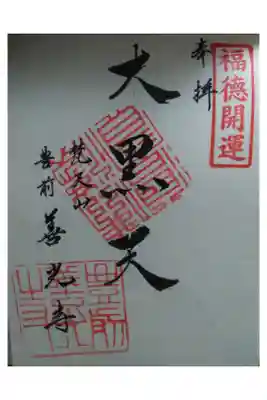 福徳開運
奉拝
大黒天
梵天山
豊前 善光寺